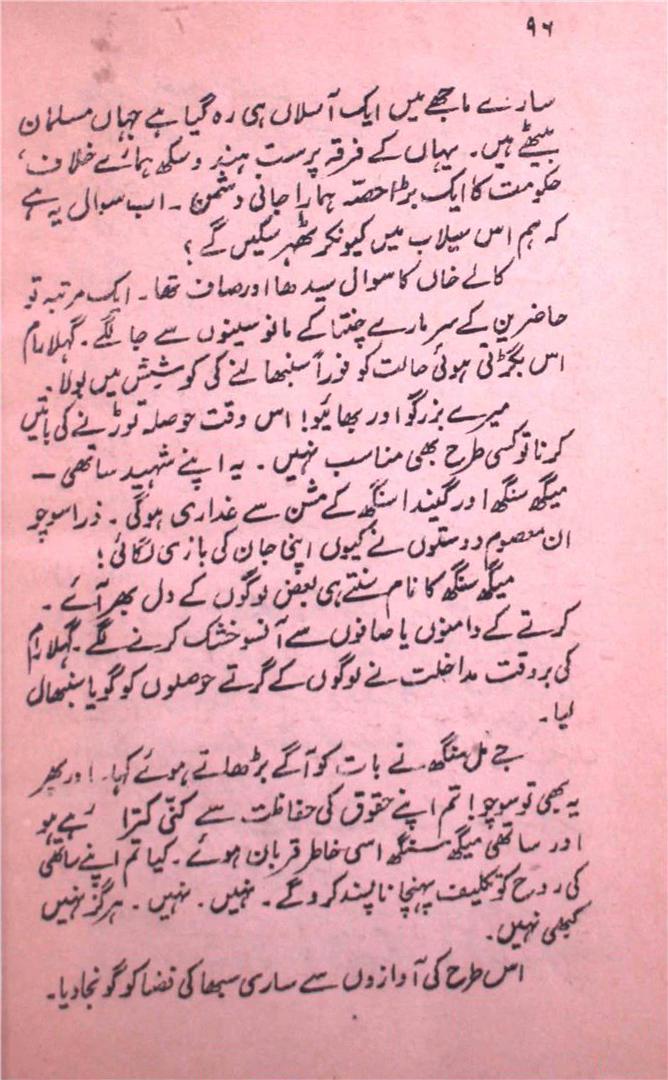 ۹۶
سارے ماجھے میں ایک آسلاں ہی رہ گیا ہے جہاں مسلمان
بیٹھے ہیں۔ یہاں کے فرقہ پرست ہندو سکھ ہمارے خلاف،
حکومت کا ایک بڑا حصہ ہمارا جانی دشمن۔ اب سوال یہ ہے
کہ ہم اس سیلاب میں کیونکر ٹھہر سکیں گے؟
کالے خاں کا سوال سیدھا اور صاف تھا۔ ایک مرتبہ تو
حاضرین کے سر مارے چنتا کے مانو سینوں سے جا لگے۔ گہلا رام
اس بگڑتی ہوئی حالت کو فوراً سنبھالنے کی کوشش میں بولا۔
میرے بزرگو اور بھائیو! اس وقت حوصلہ توڑنے کی باتیں
کرنا تو کسی طرح بھی مناسب نہیں۔ یہ اپنے شہید ساتھی ـــ
میگھ سنگھ اور گیندا سنگھ کے مشن سے غداری ہوگی۔ ذرا سوچو
ان معصوم دوستوں نے کیوں اپنی جان کی بازی لگائی؛
میگھ سنگھ کا نام سنتے ہی بعض لوگوں کے دل بھر آئے۔
کرتے کے دامنوں یا صافوں سے آنسو خشک کرنے لگے۔ گہلا رام
کی بروقت مداخلت نے لوگوں کے گرتے حوصلوں کو گویا سنبھال
لیا۔
جے مل سنگھ نے بات کو آگے بڑھاتے ہوئے کہا۔ اور پھر
یہ بھی تو سوچو! تم اپنے حقوق کی حفاظت سے کنّی کترا رہے ہو
اور ساتھی میگھ سنگھ اسی خاطر قربان ہوئے۔ کیا تم اپنے ساتھی
کی روح کو تکلیف پہنچانا پسند کرو گے۔ نہیں۔ نہیں۔ ہرگز نہیں
کبھی نہیں۔
اس طرح کی آوازوں سے ساری سبھا کی فضا کو گونجا دیا۔